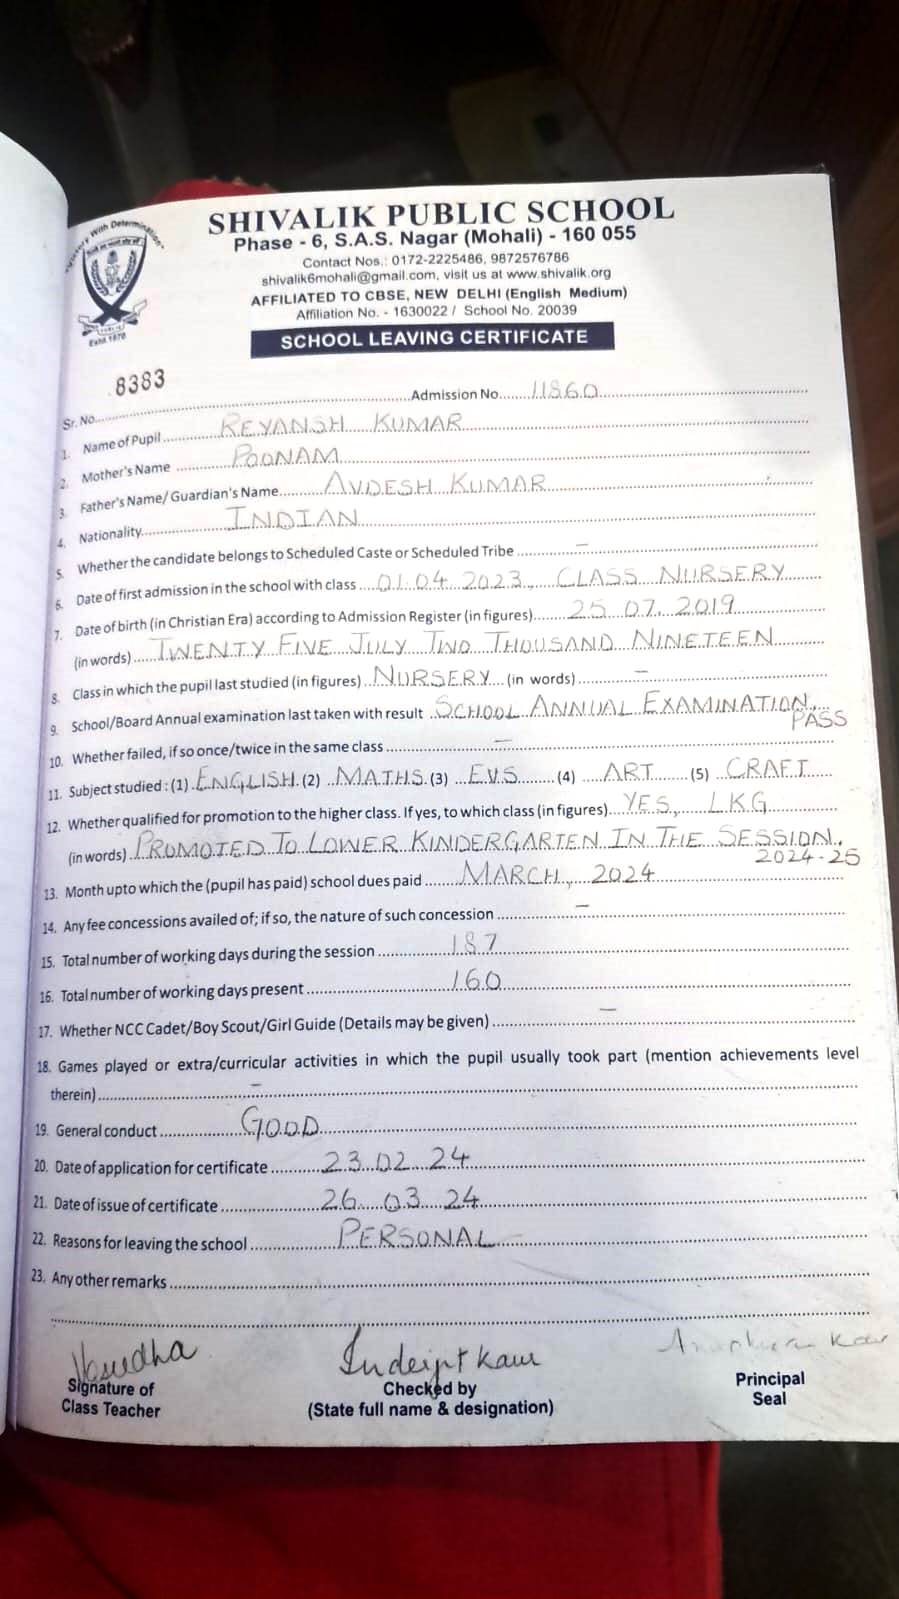 "Victory With Determination"
Estd. 1970
SHIVALIK PUBLIC SCHOOL
Phase - 6, S.A.S. Nagar (Mohali) - 160 055
Contact Nos.: 0172-2225486, 9872576786
shivalik6mohali@gmail.com, visit us at www.shivalik.org
AFFILIATED TO CBSE, NEW DELHI (English Medium)
Affiliation No. - 1630022 / School No. 20039
SCHOOL LEAVING CERTIFICATE
Sr. No. 8383 Admission No. 11860
1. Name of Pupil REYANSH KUMAR
2. Mother's Name POONAM
3. Father's Name/ Guardian's Name AVDESH KUMAR
4. Nationality INDIAN
5. Whether the candidate belongs to Scheduled Caste or Scheduled Tribe –
6. Date of first admission in the school with class 01.04.2023, CLASS NURSERY
7. Date of birth (in Christian Era) according to Admission Register (in figures) 25.07.2019
(in words) TWENTY FIVE JULY TWO THOUSAND NINETEEN
8. Class in which the pupil last studied (in figures) NURSERY (in words) –
9. School/Board Annual examination last taken with result SCHOOL ANNUAL EXAMINATION,
PASS
10. Whether failed, if so once/twice in the same class –
11. Subject studied : (1) ENGLISH (2) MATHS (3) EVS (4) ART (5) CRAFT
12. Whether qualified for promotion to the higher class. If yes, to which class (in figures) YES, LKG
(in words) PROMOTED TO LOWER KINDERGARTEN IN THE SESSION,
2024-25
13. Month upto which the (pupil has paid) school dues paid MARCH, 2024
14. Any fee concessions availed of; if so, the nature of such concession –
15. Total number of working days during the session 187
16. Total number of working days present 160
17. Whether NCC Cadet/Boy Scout/Girl Guide (Details may be given) –
18. Games played or extra/curricular activities in which the pupil usually took part (mention achievements level
therein) –
19. General conduct GOOD
20. Date of application for certificate 23.02.24
21. Date of issue of certificate 26.03.24
22. Reasons for leaving the school PERSONAL
23. Any other remarks
Vasudha Inderjit Kaur Kaur
Signature of Checked by Principal
Class Teacher (State full name & designation) Seal